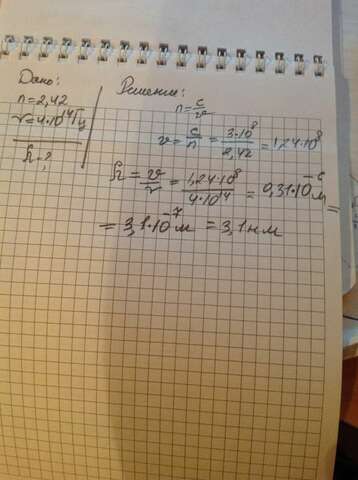 Дано:
n=2,42
ν=4·10¹⁴Гц
λ-?
Решение:
n=c/v
v=c/n=3·10⁸/2,42=1,24·10⁸
λ=v/ν=1,24·10⁸/4·10¹⁴=0,31·10⁻⁶м=
=3,1·10⁻⁷м=3,1нм